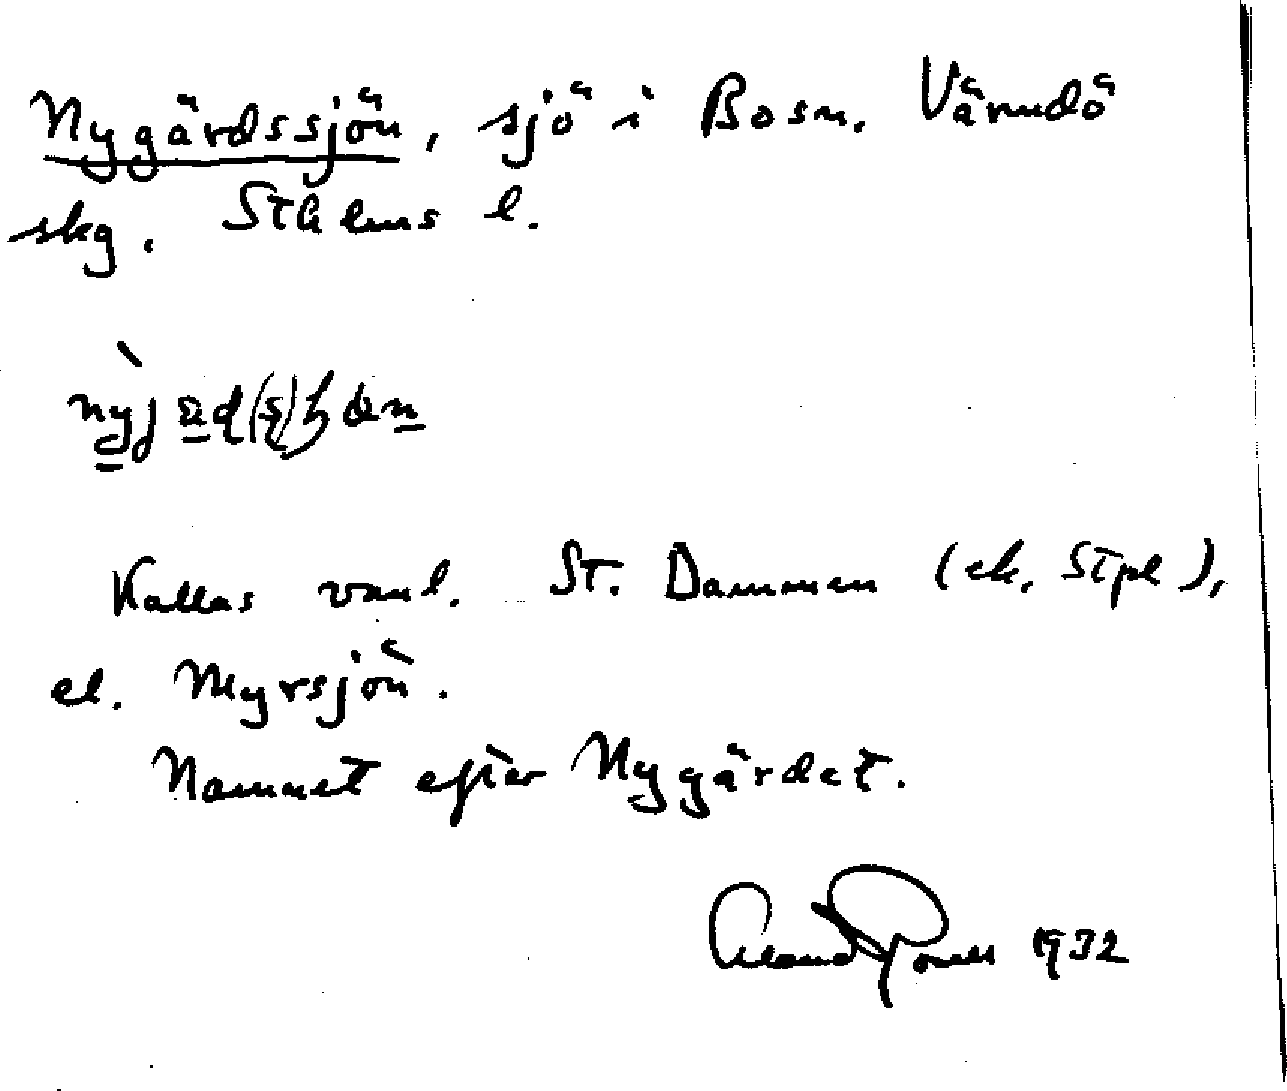 Nygärdssjön, sjö i Bosn. Värmdö
skg. Sthlms l.
Kallas vanl. St. Dammen (ek. Stpl),
el. Myrsjön.
Namnet efter Nygärdet.
1932